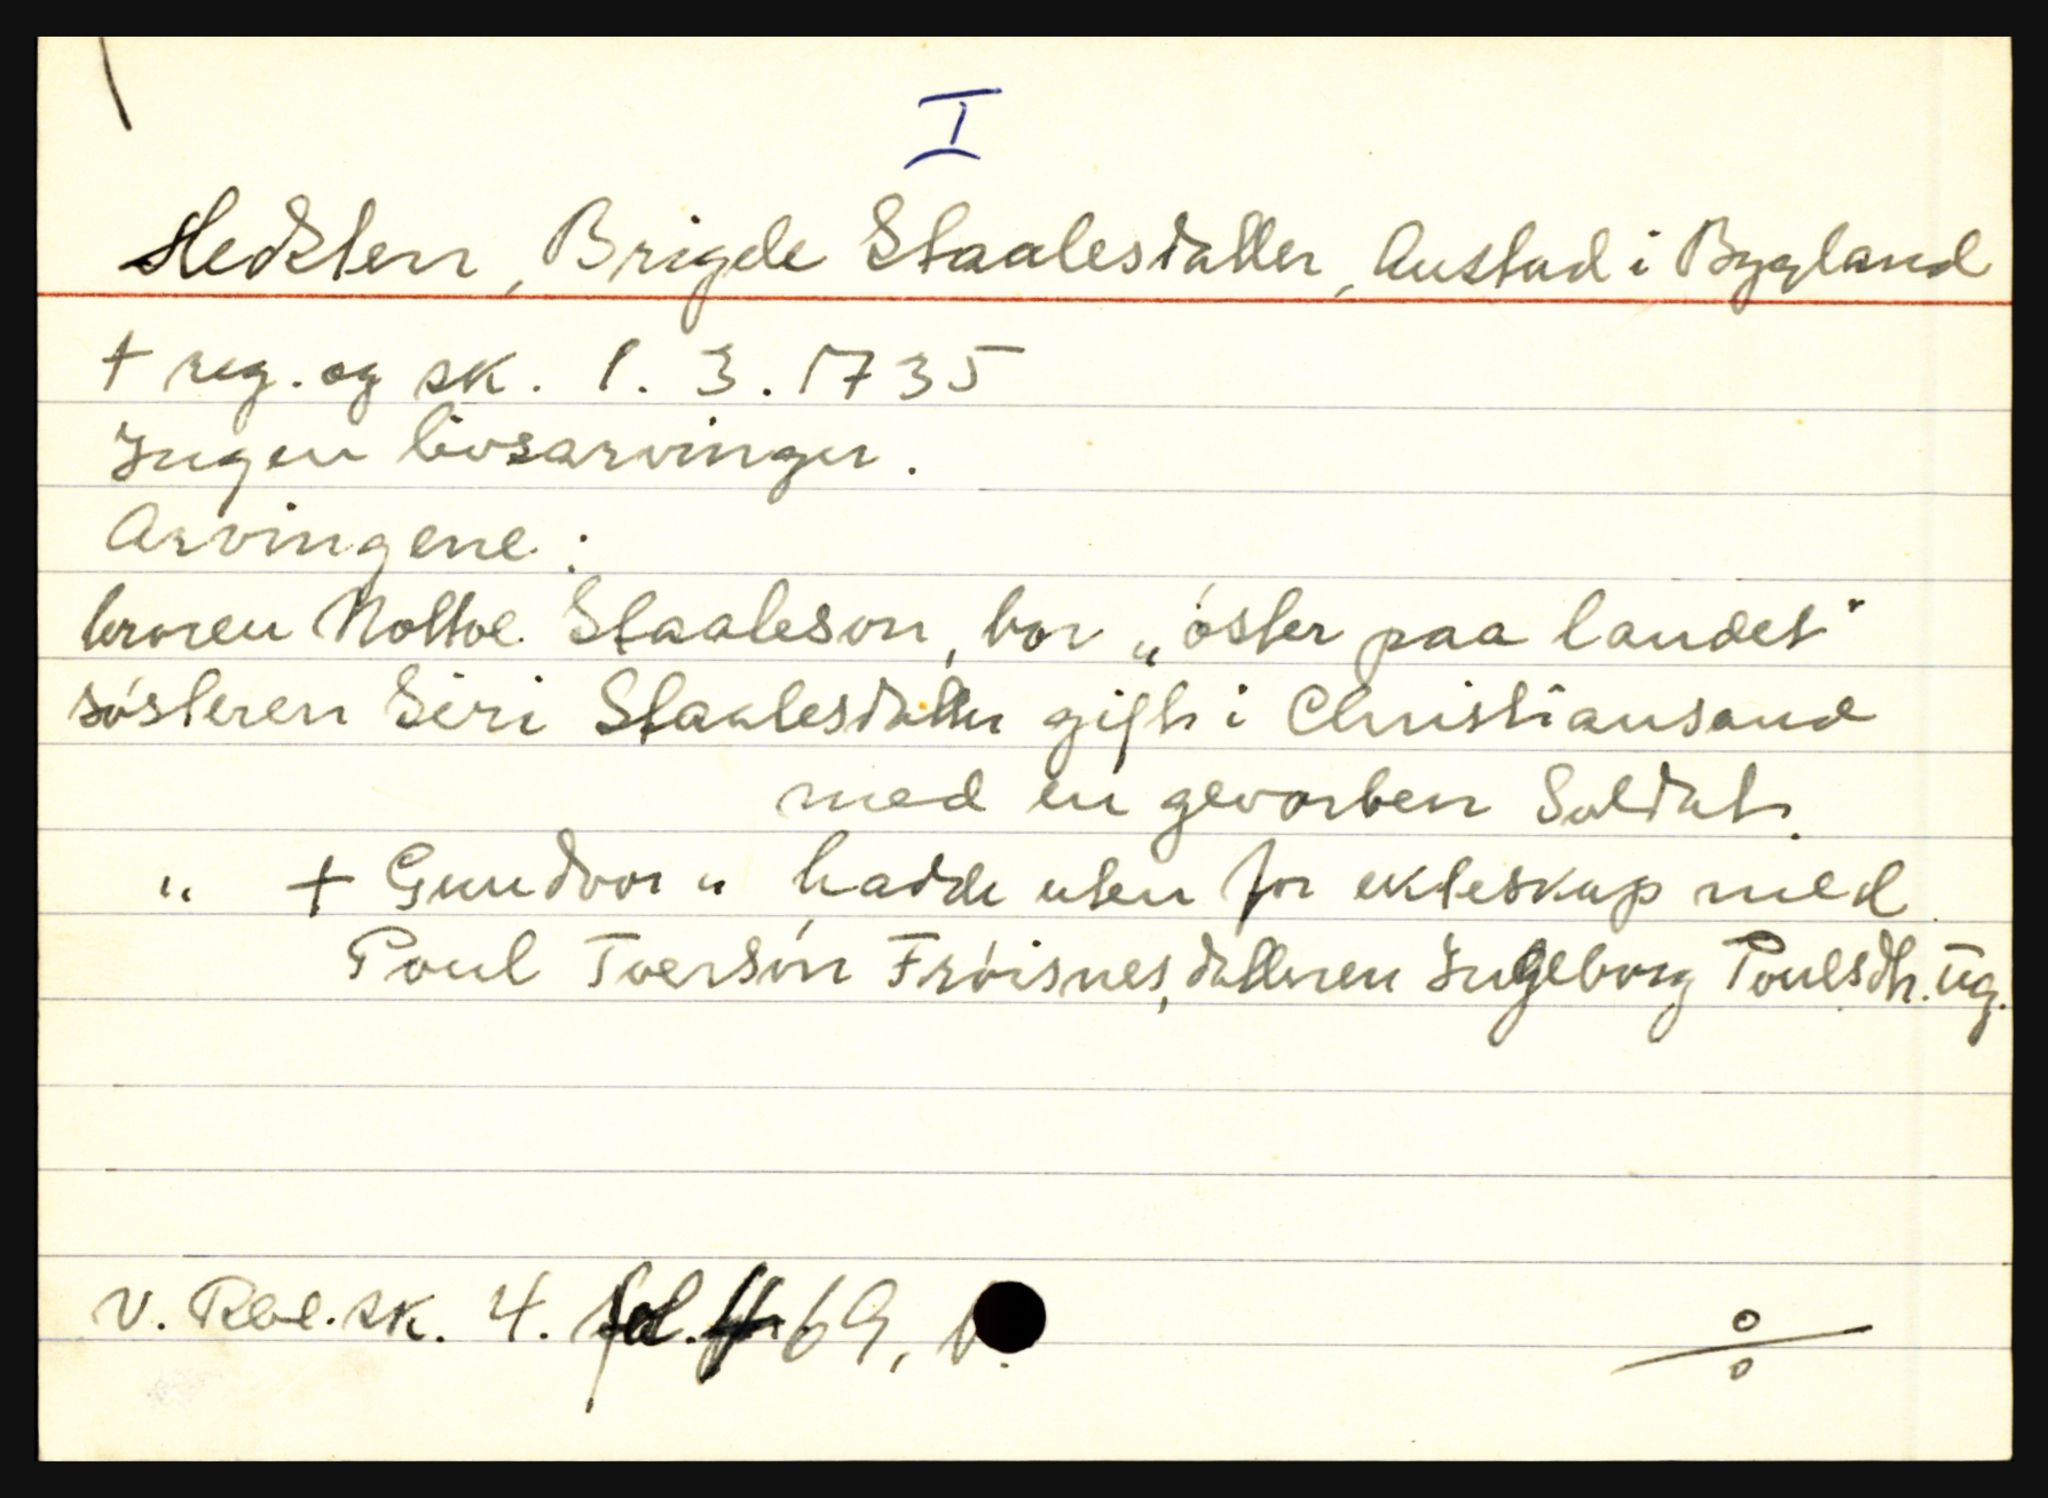 I
Hedsten, Brigde Staalesdatter, Austad i Bygland
+ reg. og sk. 1. 3. 1735
Ingen livsarvinger.
Arvingene:
broren Nottov Staaleson, bor „öster paa landet"
søsteren Siri Staalesdatter gift i Christiansand
med en gevorben Soldat.
" + Gundvor " hadde uten for ekteskap med
Poul Tversön Fröisnes, datteren Ingeborg Poulsdtr. ug.
V. Rbl. sk. 4. fol. 69,